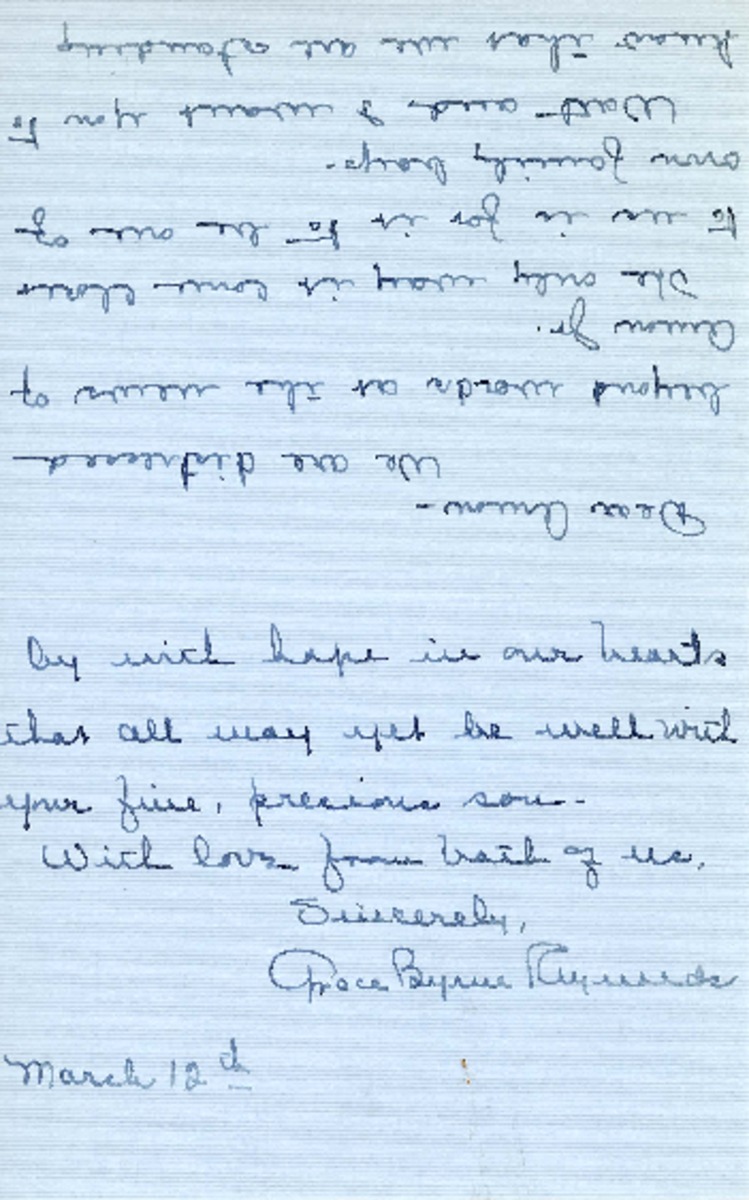 Dear Amon -
We are distressed
beyond words at the news of
Amon Jr.
The only way it could come closer
to us is for it to be one of
our family boys -
Walt and I want you to
know that we are standing
by with hope in our hearts
that all may yet be well with
your fine, precious son -
With love from both of us,
Sincerely,
Grace Byrne Reynolds
March 12th